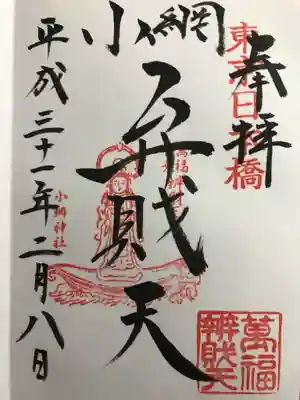 奉拝
東京日本橋
小網
弁財天
萬福
小網神社
平成三十一年二月八日
萬福
辨財天